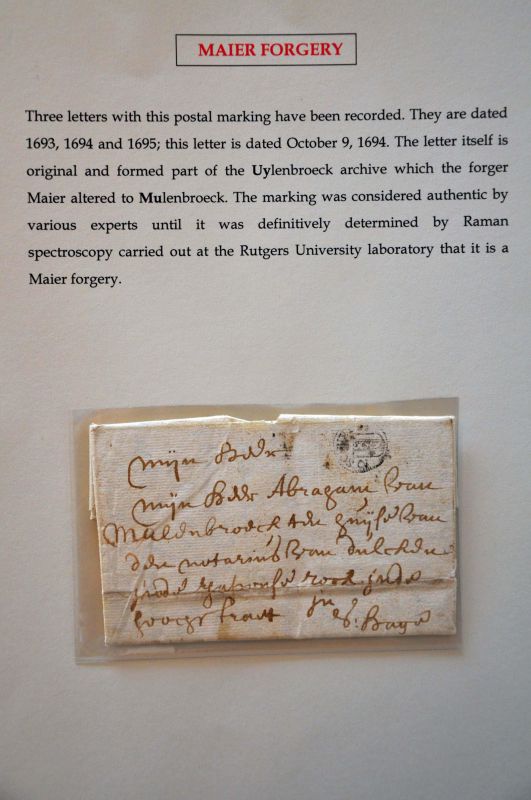 MAIER FORGERY
Three letters with this postal marking have been recorded. They are dated
1693, 1694 and 1695; this letter is dated October 9, 1694. The letter itself is
original and formed part of the Uylenbroeck archive which the forger
Maier altered to Mulenbroeck. The marking was considered authentic by
various experts until it was definitively determined by Raman
spectroscopy carried out at the Rutgers University laboratory that it is a
Maier forgery.
Mijn
Mijn Abraham van
Mulenbroeck
den notarius van
in